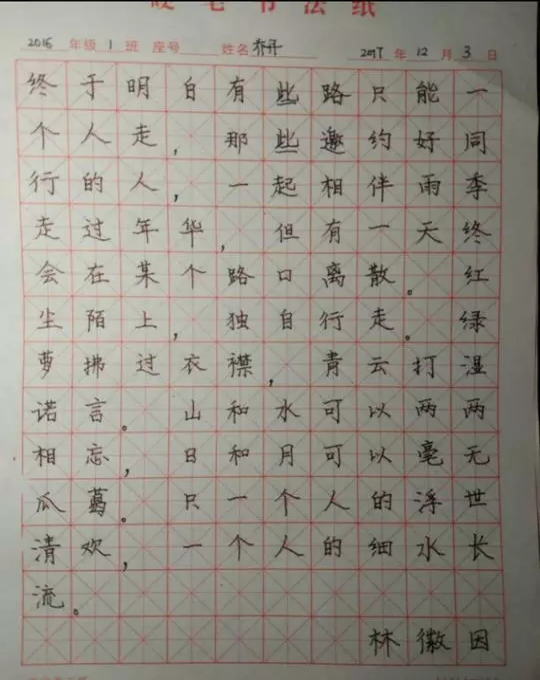 硬笔书法纸
2016 年级 1 班 座号 姓名 乔丹 2017 年 12 月 3 日
终于明白有些路只能一
个人走，那些邀约好同
行的人，一起相伴雨季
走过年华，但有一天终
会在某个路口离散。红
尘陌上，独自行走。绿
萝拂过衣襟，青云打湿
诺言。山和水可以两两
相忘，日和月可以毫无
瓜葛。只一个人的浮世
清欢，一个人的细水长
流。
林徽因